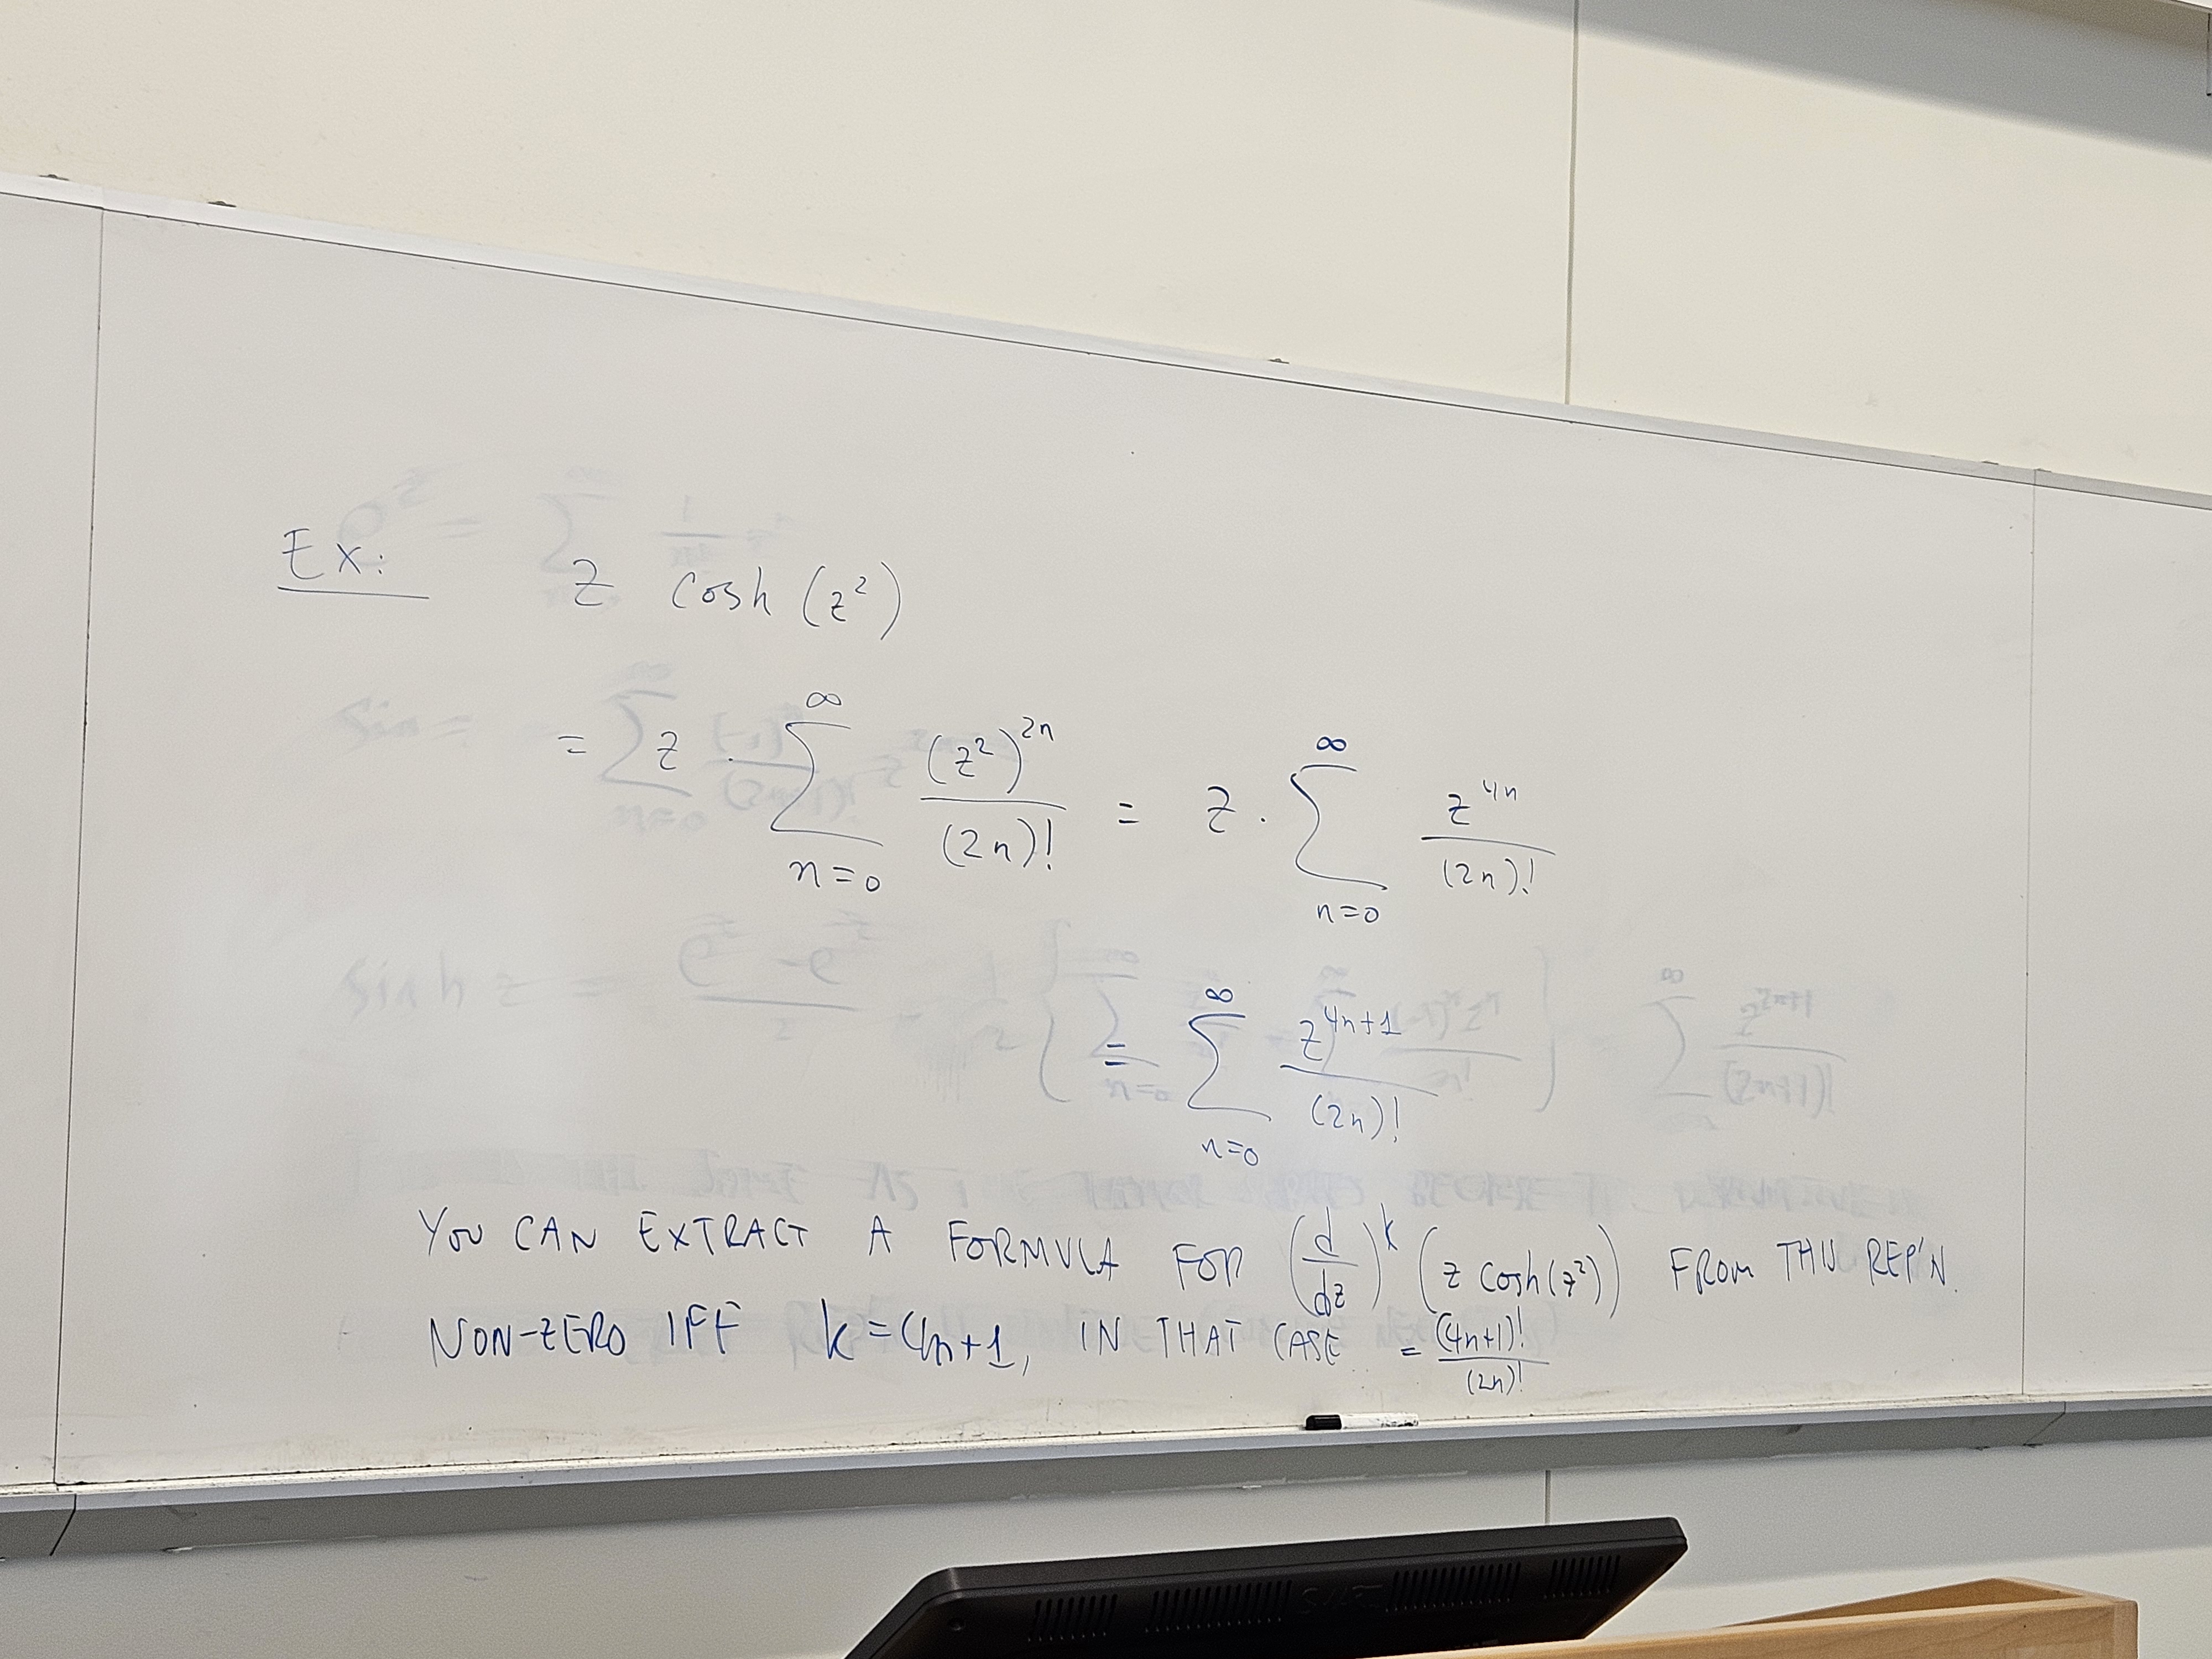 Ex: z cosh (z²)
= z · ∑_{n=0}^{∞} (z²)^{2n} / (2n)! = z · ∑_{n=0}^{∞} z^{4n} / (2n)!
= ∑_{n=0}^{∞} z^{4n+1} / (2n)!
YOU CAN EXTRACT A FORMULA FOR (d/dz)^k (z cosh(z²)) FROM THIS REP'N.
NON-ZERO IFF k=4n+1, IN THAT CASE = (4n+1)! / (2n)!